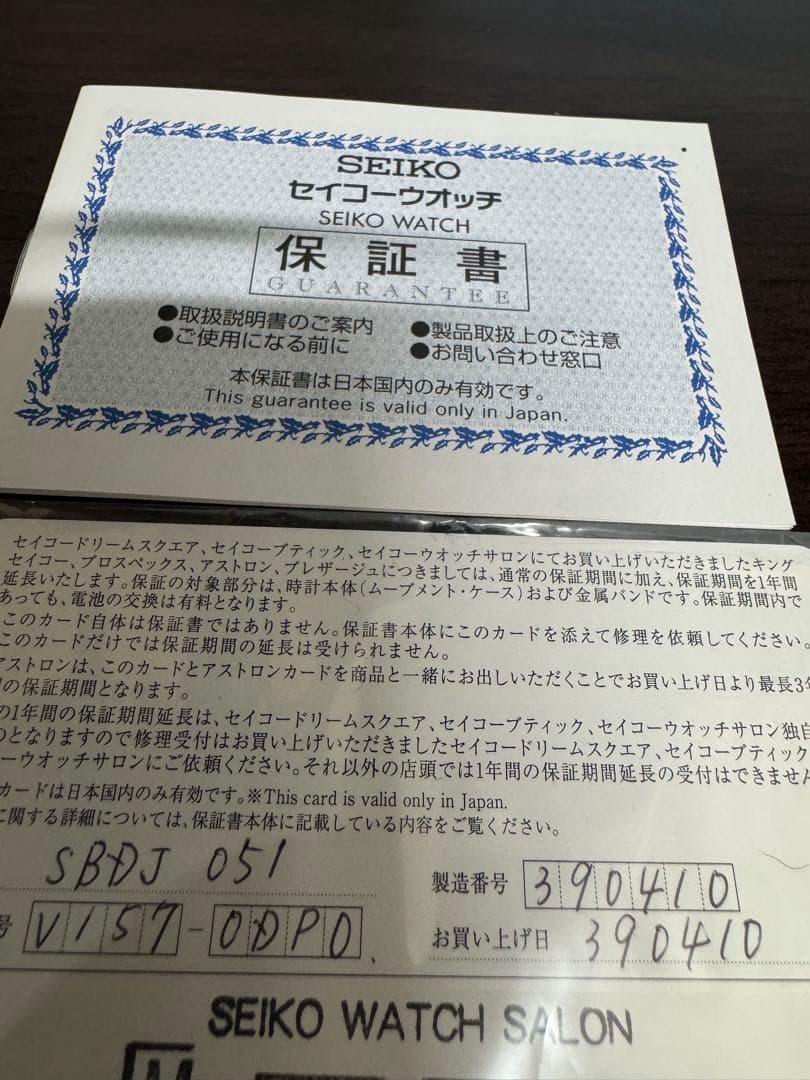 SEIKO
セイコーウオッチ
SEIKO WATCH
保証書
GUARANTEE
●取扱説明書のご案内 ●製品取扱上のご注意
●ご使用になる前に ●お問い合わせ窓口
本保証書は日本国内のみ有効です。
This guarantee is valid only in Japan.
セイコードリームスクエア、セイコーブティック、セイコーウオッチサロンにてお買い上げいただきましたキング
セイコー、プロスペックス、アストロン、プレザージュにつきましては、通常の保証期間に加え、保証期間を1年間
延長いたします。保証の対象部分は、時計本体(ムーブメント・ケース)および金属バンドです。保証期間内で
あっても、電池の交換は有料となります。
このカード自体は保証書ではありません。保証書本体にこのカードを添えて修理を依頼してください。
このカードだけでは保証期間の延長は受けられません。
アストロンは、このカードとアストロンカードを商品と一緒にお出しいただくことでお買い上げ日より最長3年
の保証期間となります。
の1年間の保証期間延長は、セイコードリームスクエア、セイコーブティック、セイコーウオッチサロン独自
のとなりますので修理受付はお買い上げいただきましたセイコードリームスクエア、セイコーブティック
ーウオッチサロンにご依頼ください。それ以外の店頭では1年間の保証期間延長の受付はできません
カードは日本国内のみ有効です。※This card is valid only in Japan.
に関する詳細については、保証書本体に記載している内容をご覧ください。
SBDJ 051 製造番号 390410
号 V157-0DP0 お買い上げ日 390410
SEIKO WATCH SALON